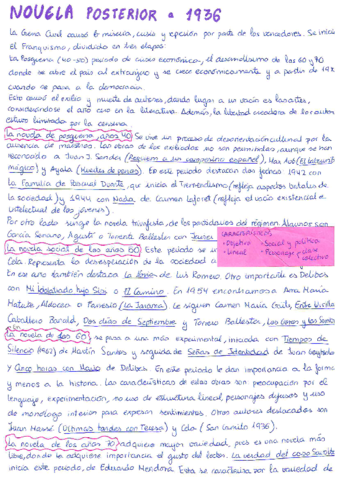 NOVELA POSTERIOR A 1936
La Guerra Civil causó la miseria, crisis y represión por parte de los vencedores. Se inicia
el Franquismo, dividido en tres etapas:
La Posguerra (40-50) periodo de crisis económica, el desarrollismo de los 60 y 70
donde se abre el país al extranjero y se crece económicamente y a partir de 1975
cuando se pasa a la democracia.
Esto causó el exilio y muerte de autores, dando lugar a un vacío en las artes,
considerándose el año cero en la literatura. Además, la libertad creadora de los autores
estuvo limitada por la censura.
La novela de posguerra, años 40 Se vive un proceso de desorientación cultural por la
ausencia de maestros. Las obras de los exiliados no son permitidas, aunque se han
reconocido a Juan J. Sender (Requiem a un campesino español), Max Aub (El laberinto
mágico) y Ayala (Muertes de perros). En este periodo destacan dos fechas 1942 con
La Familia de Pascual Duarte, que inicia el Tremendismo (refleja aspectos brutales de
la sociedad) y 1944 con Nada, de Carmen Laforet (refleja el vacío existencial e
intelectual de los jóvenes).
Por otro lado surge la novela triunfalista, de los partidarios del régimen. Algunos son
García Serrano, Agustí o Torrente Ballester con Javier
CARACTERÍSTICAS
• Objetivo • Social y política
• Lineal • Personaje colectivo
La novela social de los años 50 Este periodo se in
Cela. Representa la desesperación de la sociedad a
En ese año también destaca La Noria de Luis Romero. Otro importante es Delibes
con Mi idolatrado hijo Sisí o El Camino. En 1954 encontramos a Ana María
Matute, Aldecoa o Ferlosio (La Jarama). Le siguen Carmen María Gaite, Entre Visillos
Caballero Bonald, Dos días de Septiembre y Torrente Ballester, Los Gozos y las Sombras
La novela de los 60 se pasa a una más experimental, iniciada con Tiempos de
Silencio (1962) de Martín Santos y seguida de Señas de Identidad de Juan Goytisolo
y Cinco horas con Mario de Delibes. En este periodo le dan importancia a la forma
y menos a la historia. Las características de estas obras son preocupación por el
lenguaje, experimentación, no uso de estructura lineal, personajes difusos y uso
de monólogo interior para expresar sentimientos. Otros autores destacados son
Juan Marsé (Últimas tardes con Teresa) y Cela (San Camilo 1936).
La novela de los años 70 adquiere mayor variedad, pues es una novela más
libre, donde se adquiere importancia el gusto del lector. La verdad del caso Savolta
inicia este periodo, de Eduardo Mendoza. Esta se caracteriza por la variedad de